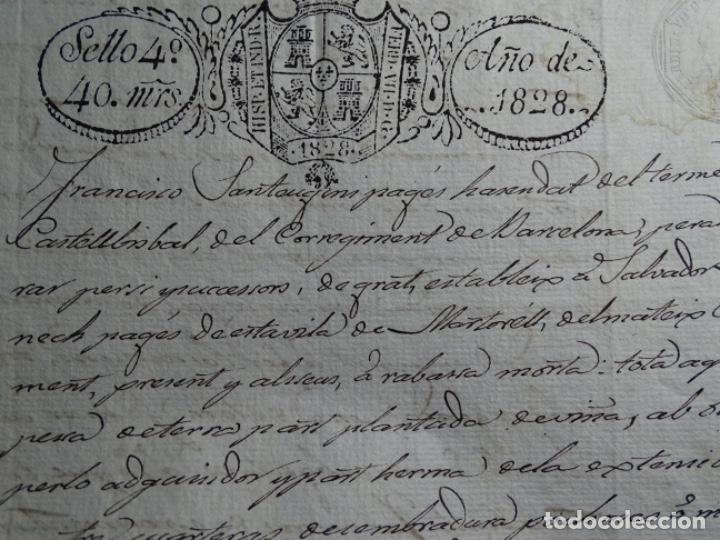 Sello 4º
40. mrs.
HISP. ET IND. R
1828
Año de
1828.
Francisco Santaugini pagés hasendat del terme
Castellbisbal, del Corregiment de Barcelona, pera
rar persi y successors, de grat, estableix â Salvador
nech pagés de esta vila de Martoréll, del mateix C
ment, present y als seus, â rabassa morta: tota aq
pessa de terra part plantada de viña, ab
perlo adquisidor y part herma de la extensi
quarteras de sembradura
todocoleccion